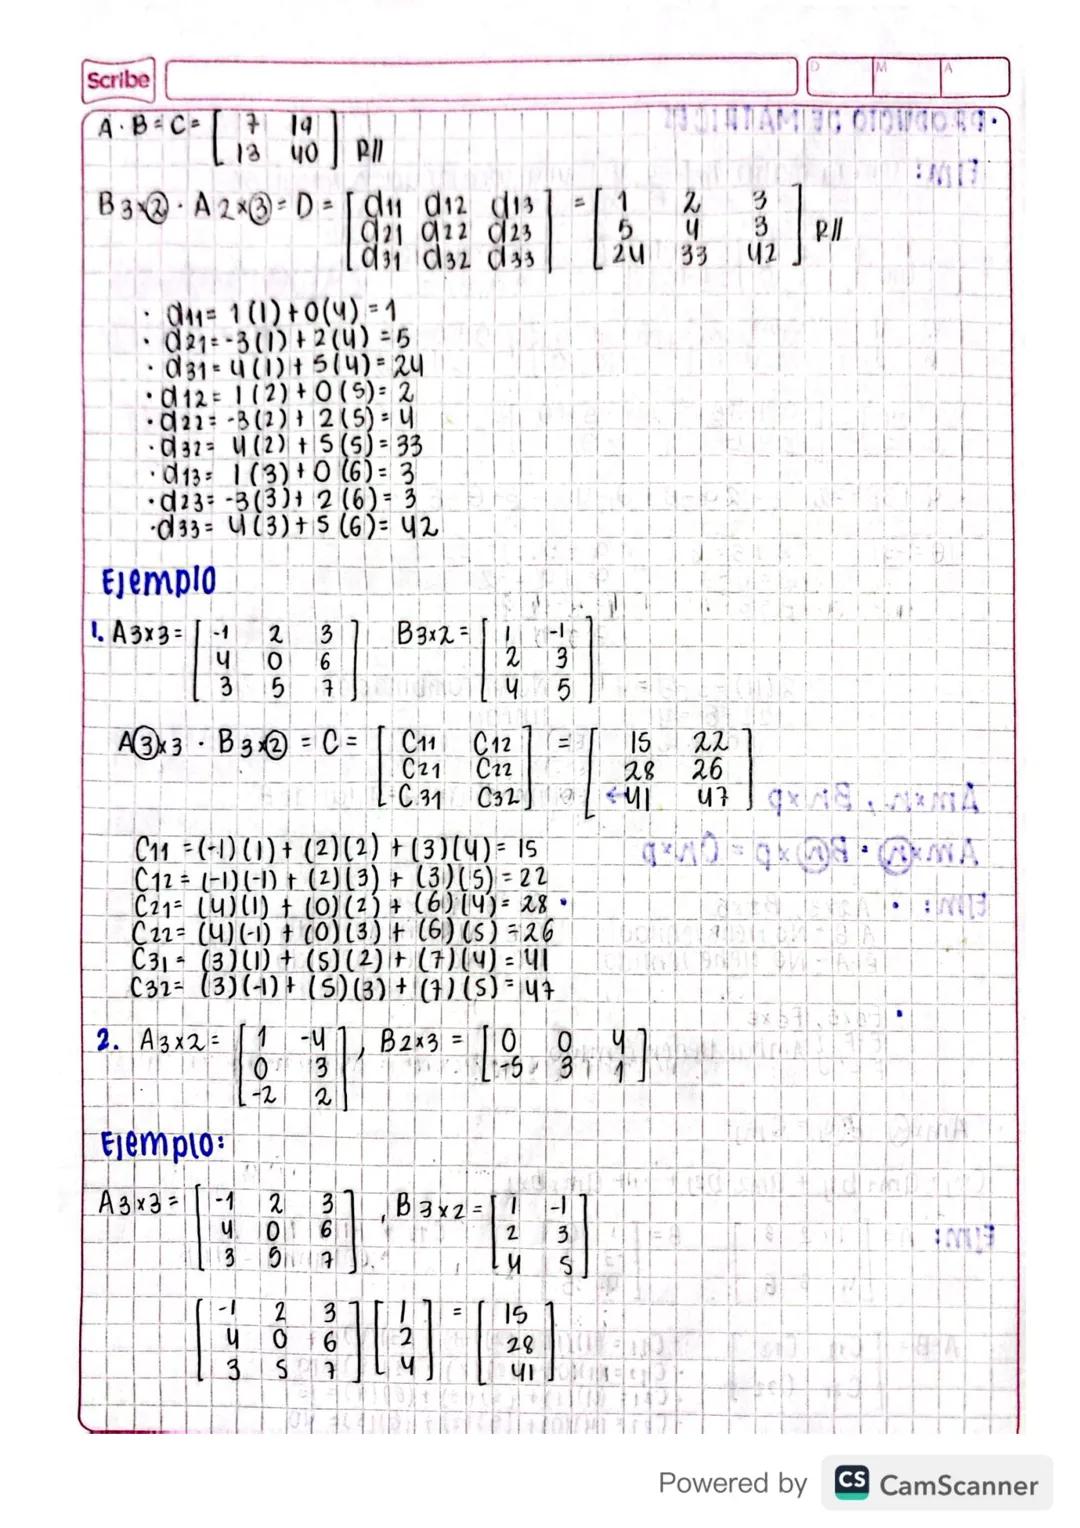 Scribe
D M A
A · B = C = [ 7 19
13 40 ] R//
B 3×2 · A 2×3 = D = [ d11 d12 d13
d21 d22 d23
d31 d32 d33 ] = [ 1 2 3
5 4 3
24 33 42 ] R//
· d11= 1(1)+0(4) = 1
· d21= -3(1) + 2(4) = 5
· d31= 4(1) + 5(4) = 24
· d12= 1(2) + 0(5)= 2
· d22= -3(2) + 2(5) = 4
· d32= 4(2) + 5(5) = 33
· d13= 1(3)+0(6)= 3
· d23= -3(3)+ 2(6)= 3
· d33= 4(3)+5(6)= 42
Ejemplo
1. A3×3= [ -1 2 3
4 0 6
3 5 7 ] B3×2= [ 1 -1
2 3
4 5 ]
A3×3 · B3×2 = C = [ C11 C12
C21 C22
C31 C32 ] = [ 15 22
28 26
41 47 ]
C11 =(-1)(1)+ (2)(2) +(3)(4)= 15
C12= (-1)(-1) + (2)(3) + (3)(5) = 22
C21= (4)(1) + (0)(2) + (6)(4)= 28
C22= (4)(-1) + (0)(3) + (6)(5) =26
C31= (3)(1) + (5)(2) + (7)(4) = 41
C32= (3)(-1)+ (5)(3) + (7)(5)= 47
2. A3×2= [ 1 -4
0 3
-2 2 ], B2×3 = [ 0 0 4
-5 3 1 ]
Ejemplo:
A3×3= [ -1 2 3
4 0 6
3 5 7 ], B3×2= [ 1 -1
2 3
4 5 ]
[ -1 2 3
4 0 6
3 5 7 ] [ 1
2
4 ] = [ 15
28
41 ]
Powered by CS CamScanner